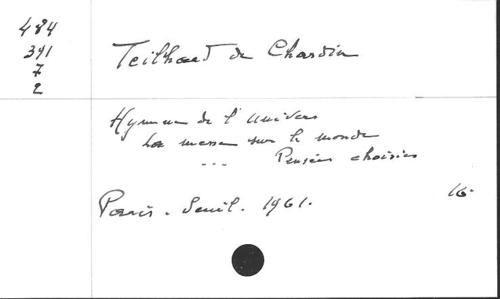 484
391
7
2
Teilhard de Chardin
Hymne de l'Univers
La messe sur le monde
... Pensées choisies
Paris. Seuil. 1961. 16.